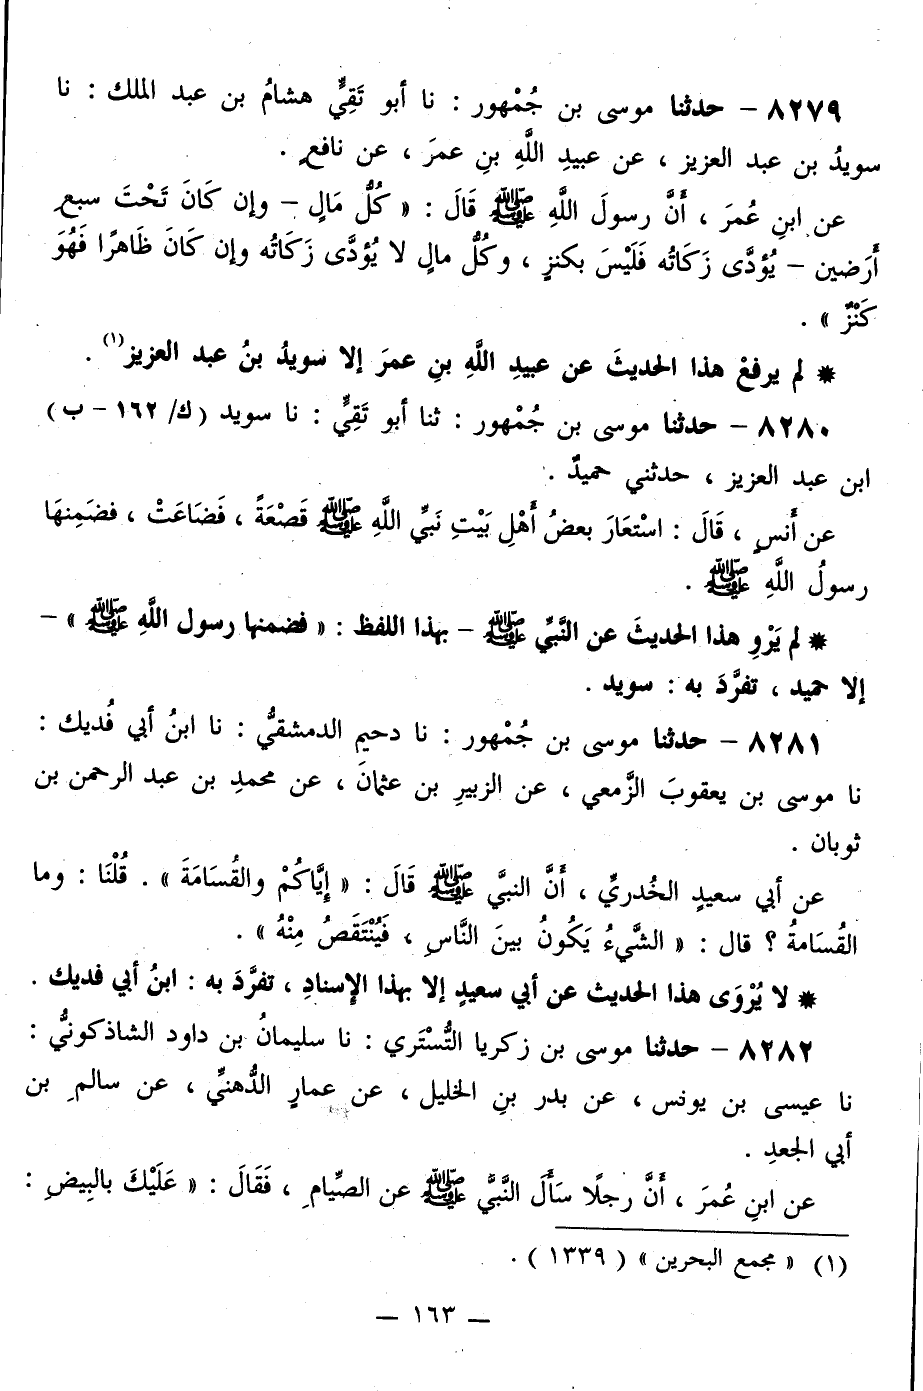 ٨٢٧٩ – حدثنا موسى بن جُمْهور : نا أبو تَقِيٍّ هشامُ بن عبد الملك : نا
سويدُ بن عبد العزيز ، عن عبيدِ اللَّهِ بنِ عمرَ ، عن نافعٍ .
عن ابنِ عُمرَ ، أَنَّ رسولَ اللَّهِ ﷺ قَالَ : « كُلُّ مَالٍ – وإن كَانَ تَحْتَ سبعِ
أَرَضين – يُؤدَّى زَكَاتُه فَلَيْسَ بكنزٍ ، وكُلُّ مالٍ لا يُؤدَّى زَكَاتُه وإن كَانَ ظَاهرًا فَهُوَ
كَنْزٌ » .
* لم يرفعْ هذا الحديثَ عن عبيدِ اللَّهِ بنِ عمرَ إلا سويدُ بنُ عبد العزيز(١) .
٨٢٨٠ – حدثنا موسى بن جُمْهور : ثنا أبو تَقِيٍّ : نا سويد (ك/ ١٦٢ – ب)
ابن عبد العزيز ، حدثني حميدٌ .
عن أَنسٍ ، قَالَ : اسْتعَارَ بعضُ أَهْلِ بَيْتِ نَبيِّ اللَّهِ ﷺ قَصْعَةً ، فَضَاعَتْ ، فضَمِنهَا
رسولُ اللَّهِ ﷺ .
* لم يَرْوِ هذا الحديثَ عن النَّبيِّ ﷺ – بهذا اللفظ : « فضمنها رسول اللَّهِ ﷺ » –
إلا حميد ، تفرَّدَ به : سويد .
٨٢٨١ – حدثنا موسى بن جُمْهور : نا دحيم الدمشقيُّ : نا ابنُ أبي فُديك :
نا موسى بن يعقوبَ الزَّمعي ، عن الزبيرِ بن عثمانَ ، عن محمدِ بن عبد الرحمن بن
ثوبان .
عن أبي سعيدٍ الخُدريِّ ، أَنَّ النبيَّ ﷺ قَالَ : « إِيَّاكُمْ والقُسَامَةَ » . قُلْنَا : وما
القُسَامةُ ؟ قال : « الشَّيءُ يَكُونُ بينَ النَّاسِ ، فَيُنْتَقَصُ مِنْهُ » .
* لا يُرْوَى هذا الحديث عن أبي سعيدٍ إلا بهذا الإسنادِ ، تفرَّدَ به : ابنُ أبي فديك .
٨٢٨٢ – حدثنا موسى بن زكريا التُّسْتَري : نا سليمانُ بن داود الشاذكونيُّ :
نا عيسى بن يونس ، عن بدر بنِ الخليل ، عن عمارٍ الدُّهنيِّ ، عن سالمِ بن
أبي الجعدِ .
عن ابنِ عُمرَ ، أَنَّ رجلًا سَأَلَ النَّبيَّ ﷺ عن الصِّيامِ ، فَقَالَ : « عَلَيْكَ بالبِيضِ :
(١) « مجمع البحرين » (١٣٣٩) .
– ١٦٣ –